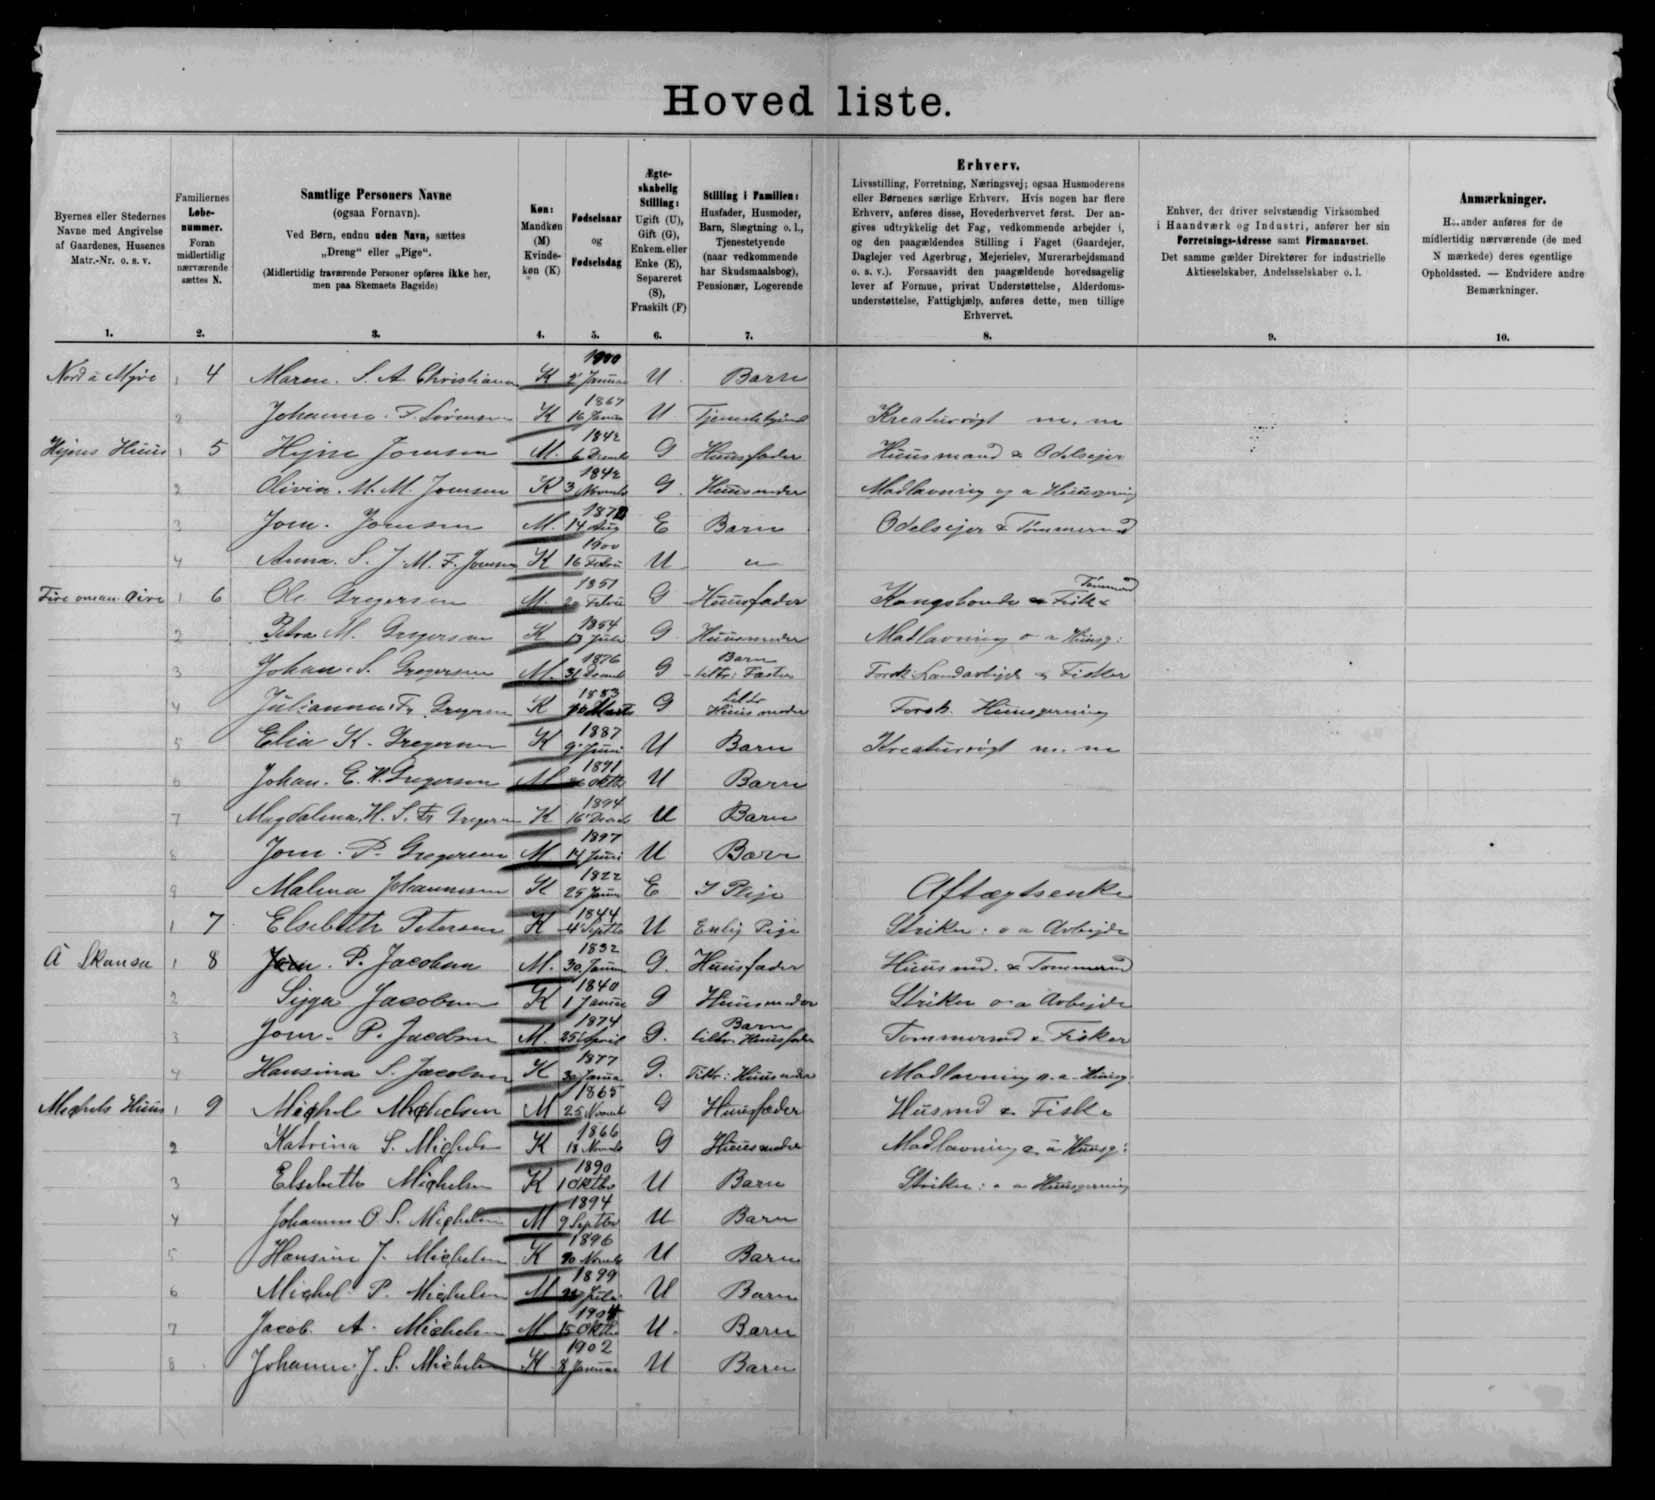 Hoved liste.
Byernes eller Stedernes Navne med Angivelse af Gaardenes, Husenes Matr.-Nr. o. s. v.
Familiernes Løbenummer. Foran midlertidig nærværende sættes N.
Samtlige Personers Navne
(ogsaa Fornavn).
Ved Børn, endnu uden Navn, sættes „Dreng“ eller „Pige“.
(Midlertidig fraværende Personer opføres ikke her, men paa Skemaets Bagside)
Køn: Mandkøn (M) Kvindekøn (K)
Fødselsaar og Fødselsdag
Ægteskabelig Stilling: Ugift (U), Gift (G), Enkem. eller Enke (E), Separeret (S), Fraskilt (F)
Stilling i Familien: Husfader, Husmoder, Barn, Slægtning o. l., Tjenestetyende (naar vedkommende har Skudsmaalsbog), Pensionær, Logerende
Erhverv.
Livsstilling, Forretning, Næringsvej; ogsaa Husmoderens eller Børnenes særlige Erhverv. Hvis nogen har flere Erhverv, anføres disse, Hovederhvervet først. Der angives udtrykkelig det Fag, vedkommende arbejder i, og den paagældendes Stilling i Faget (Gaardejer, Daglejer ved Agerbrug, Mejerielev, Murerarbejdsmand o. s. v.). Forsaavidt den paagældende hovedsagelig lever af Formue, privat Understøttelse, Alderdomsunderstøttelse, Fattighjælp, anføres dette, men tillige Erhvervet.
Enhver, der driver selvstændig Virksomhed i Haandværk og Industri, anfører her sin Forretnings-Adresse samt Firmanavnet. Det samme gælder Direktører for industrielle Aktieselskaber, Andelsselskaber o. l.
Anmærkninger.
anføres for de midlertidig nærværende (de med N mærkede) deres egentlige Opholdssted. — Endvidere andre Bemærkninger.
1. 2. 3. 4. 5. 6. 7. 8. 9. 10.
Nord á Mýre 1 4 Maren S. A. Christiansen K 1900 2 Januar U Barn
2 Johanne F. Sørensen K 1867 16 U Kreaturrøgt m. m
Hejnes Huus 1 5 Hejne Joensen M. 1842 6 G Huusfader Huusmand & Odelsejer
2 Olivia M. M. Joensen K 1842 3 G. Huusmoder Madlavning og a Huusgerning
3 Joen Joensen M. 14 Aug E Barn Odelsejer & Tømmermd
4 Anna S. J. M. F. Joensen K 1900 16 Febru U "
1 6 Ole Gregersen M. 1851 Febru G Huusfader Kongsbonde & Fisk & Tömmermd
2 Petra M. Gregersen K 1854 13 Juli G. Huusmoder Madlavning o a Huusg:
3 Johan S. Gregersen M. 1876 31 G Barn Landarbejde & Fisker
4 Julianna Fr. Gregersen K 1883 10 Marts G Huusmoder Huusgerning
5 Elia K. Gregersen K 1887 9 Juni U Barn Kreaturrøgt m. m
6 Johan E. W. Gregersen M 1891 Oktb U Barn
7 Magdalena H. S. Fr Gregersen K 1894 16 U Barn
8 Joen P. Gregersen M 1897 14 Juni U Barn
9 Malena Johannesen K 1822 25 E I Pleje Aftægtsenke
1 7 Elsebeth Petersen K 1844 4 Septbr U Enlig Pige Striker: o a Arbejde
Á Skansa 1 8 Joen P. Jacobsen M. 1832 30 Januar G. Huusfader Huusmd. & Tømmermd
2 Sigga Jacobsen K 1840 1 Januar G Huusmoder Striker o a Arbejde
3 Joen P. Jacobsen M. 1874 25 April G. Barn Tömmermd & Fisker
4 Hansina S. Jacobsen K 1877 30 Janua G. Huusmoder Madlavning o. a Huusg
Michels Huus 1 9 Michel Michelsen M 1865 25 Novemb G Huusfader Husmd & Fisker
2 Katrina S. Michelsen K 1866 18 Novemb G Huusmoder Madlavning o a Huusg:
3 Elsebeth Michelsen K 1890 1 Oktbr U Barn Striker: o a Huusgerning
4 Johannes O. S. Michelsen M 1894 9 Septbr U Barn
5 Hansine J. Michelsen K 1896 U Barn
6 Michel P. Michelsen M 1899 Juli U Barn
7 Jacob A. Michelsen M 15 Oktb U. Barn
8 Johanne J. S. Michelsen K 1902 8 Januar U Barn